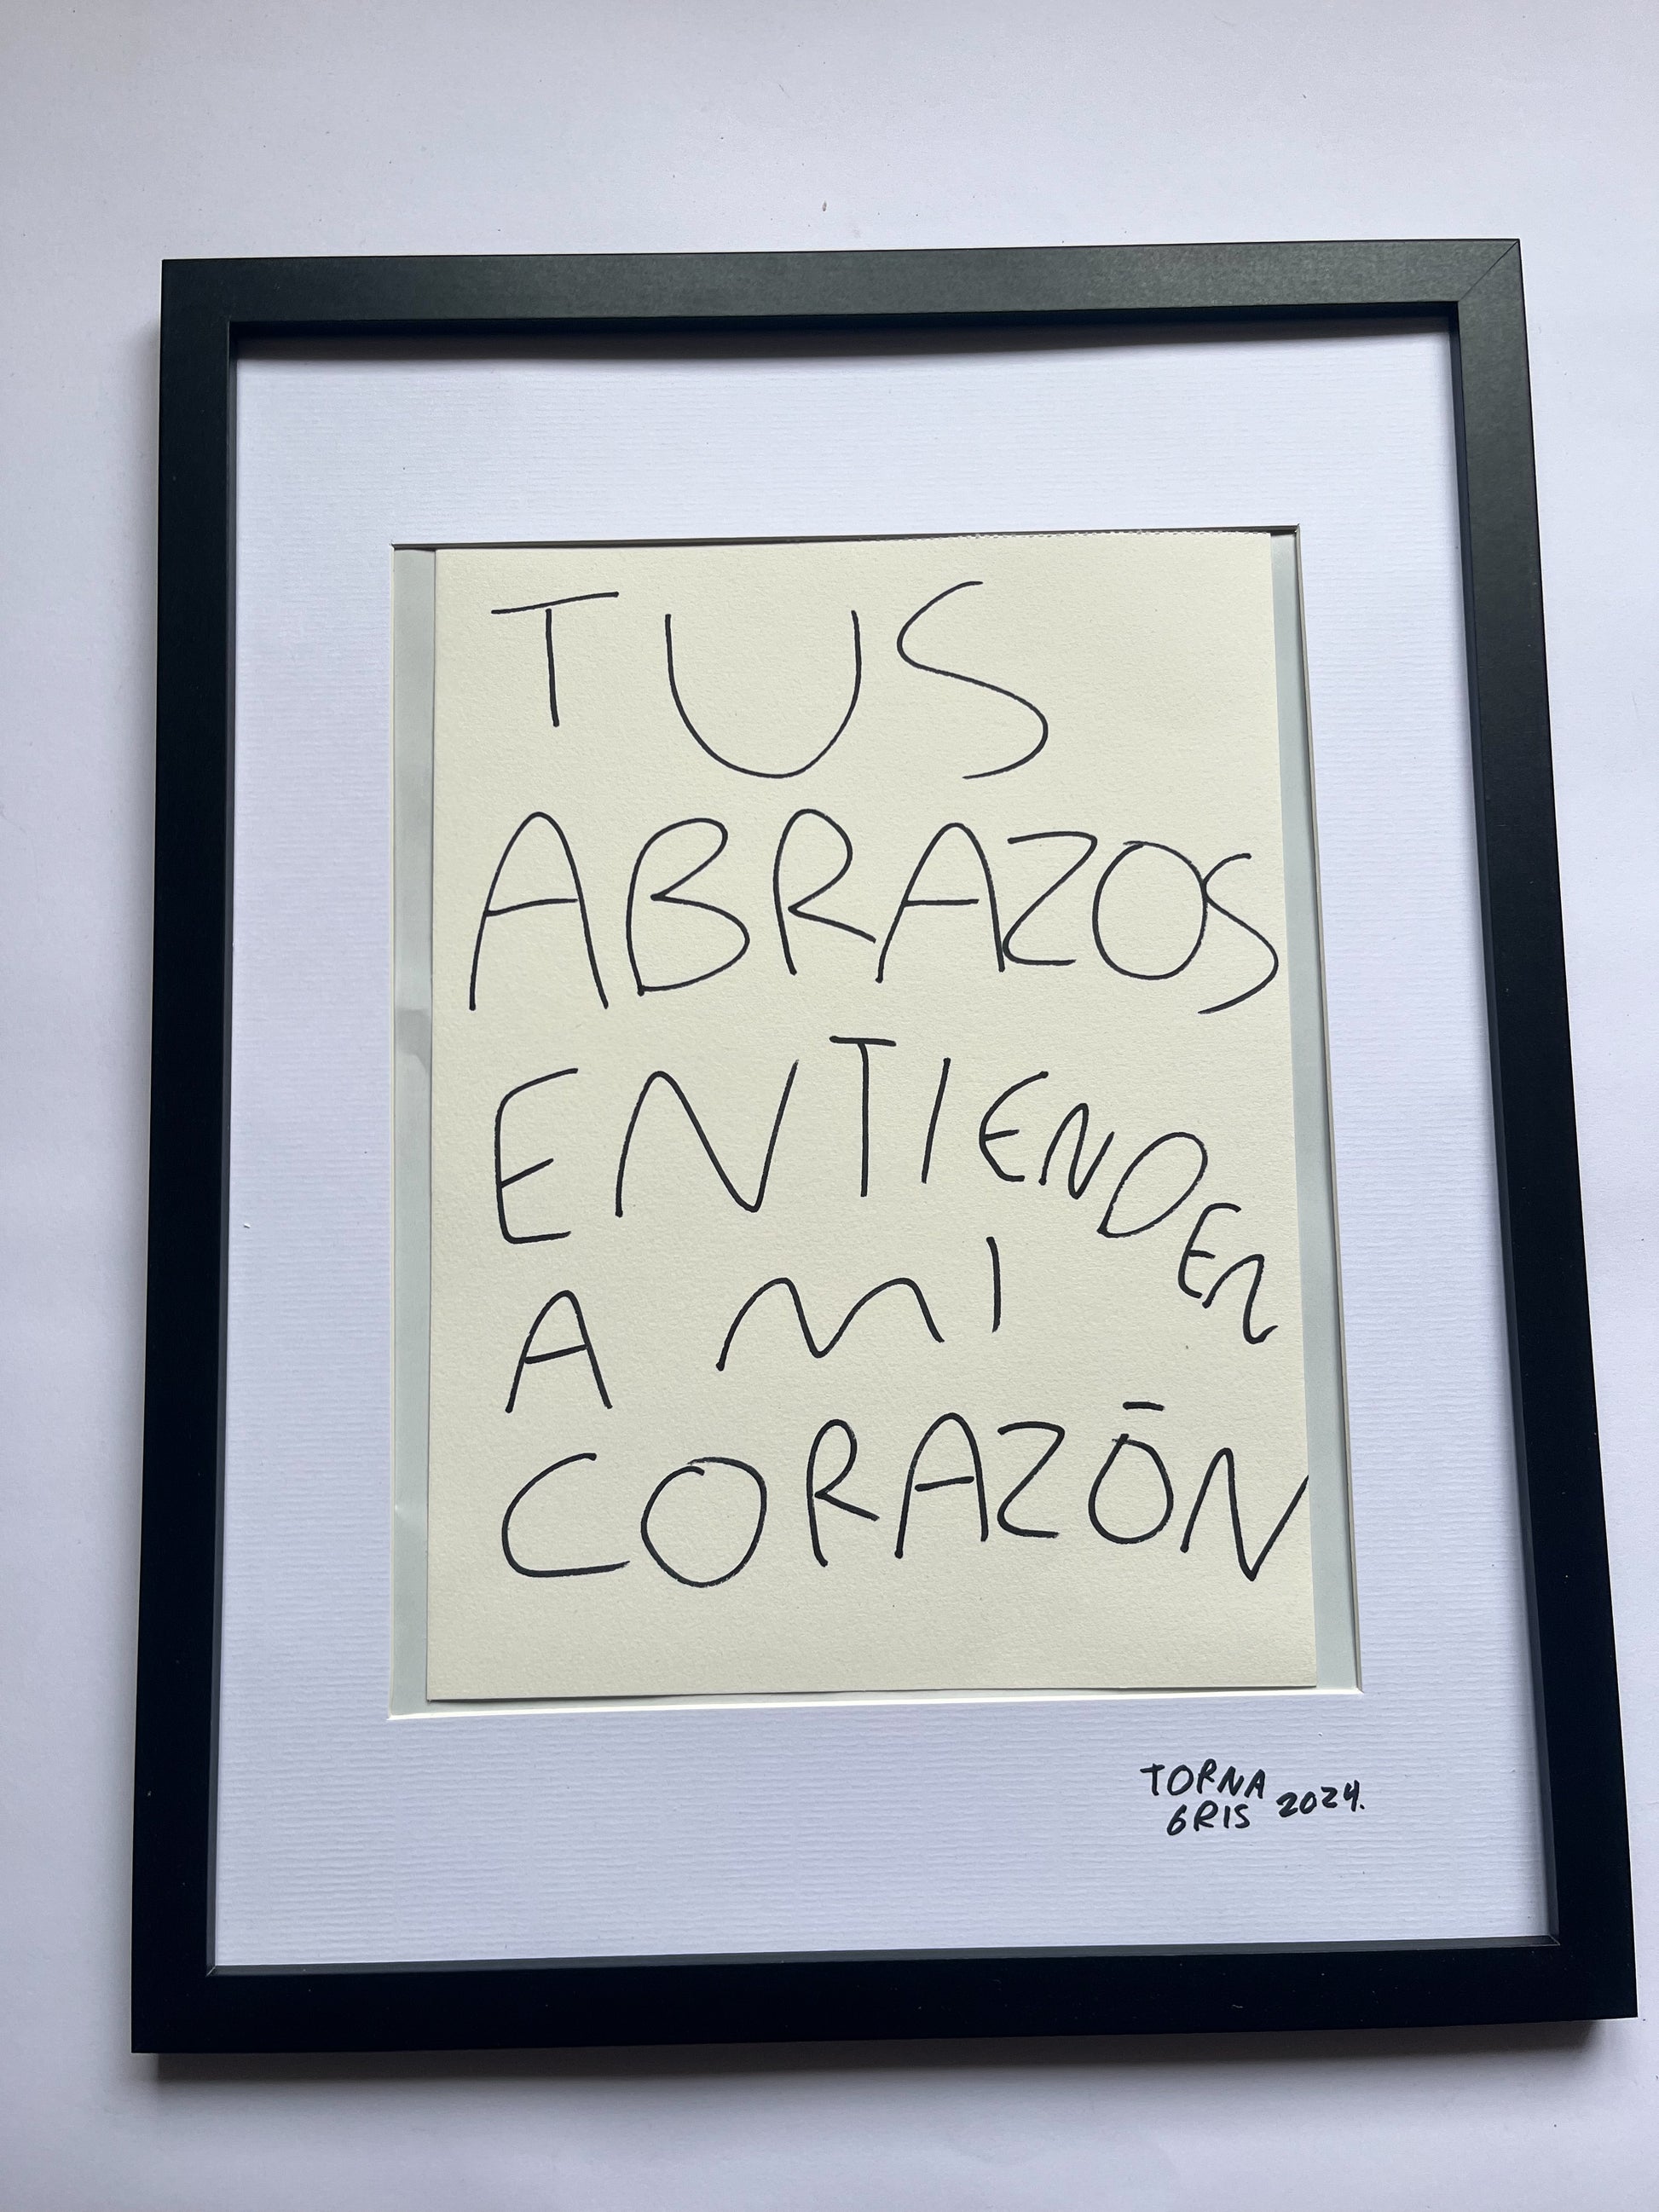 TUS
ABRAZOS
ENTIENDEN
A MI
CORAZÓN
TORNA
GRIS 2024.